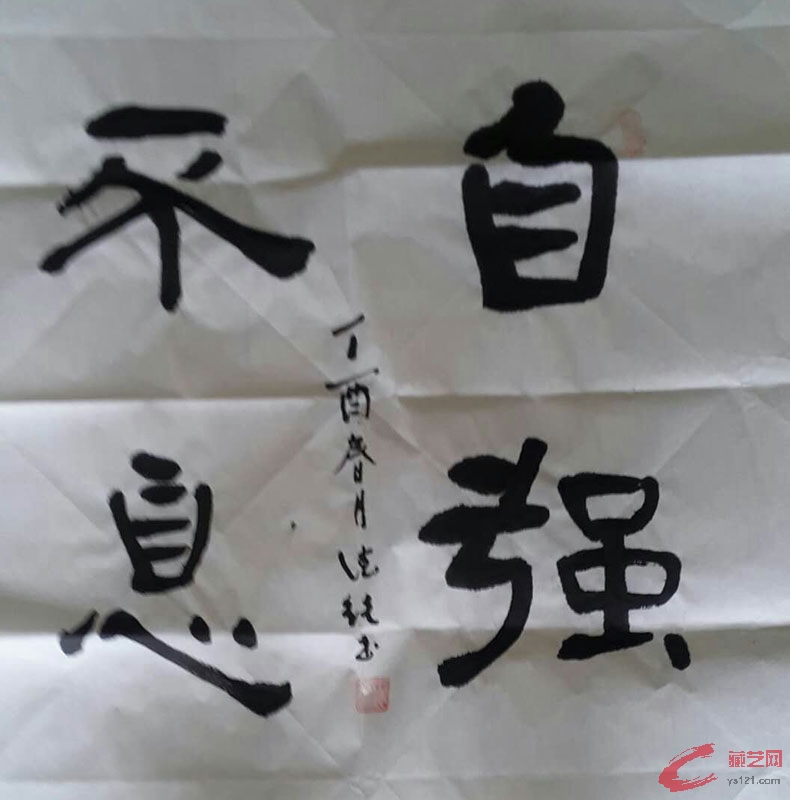 自强
不息
丁酉春月德纯书
藏艺网
ys121.com